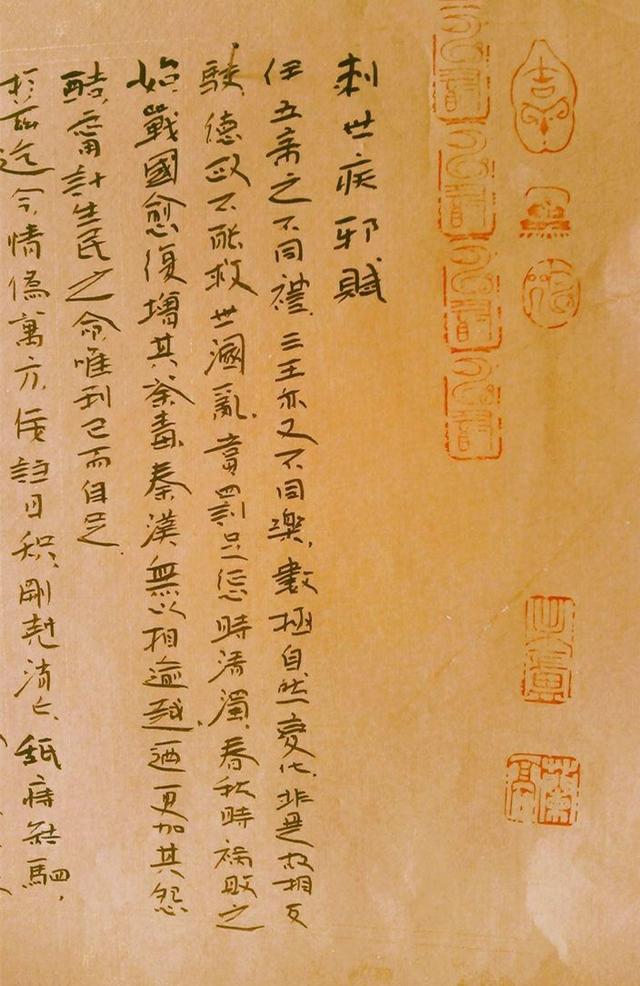 刺世疾邪賦
伊五帝之不同禮,三王亦又不同樂,數極自然變化,非是故相反
駁,德政不能救世溷亂,賞罰豈足懲時清濁,春秋時禍敗之
始,戰國愈復增其荼毒,秦漢無以相逾越,迺更加其怨
酷,甯計生民之命,唯利己而自足.
於茲迄今,情偽萬方,佞諂日熾,剛克消亡,舐痔結駟,